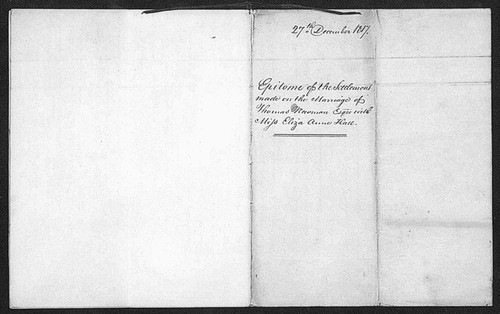 27th December 1817.
Epitome of the Settlement
made on the Marriage of
Thomas Esqre with
Miss Eliza Anne